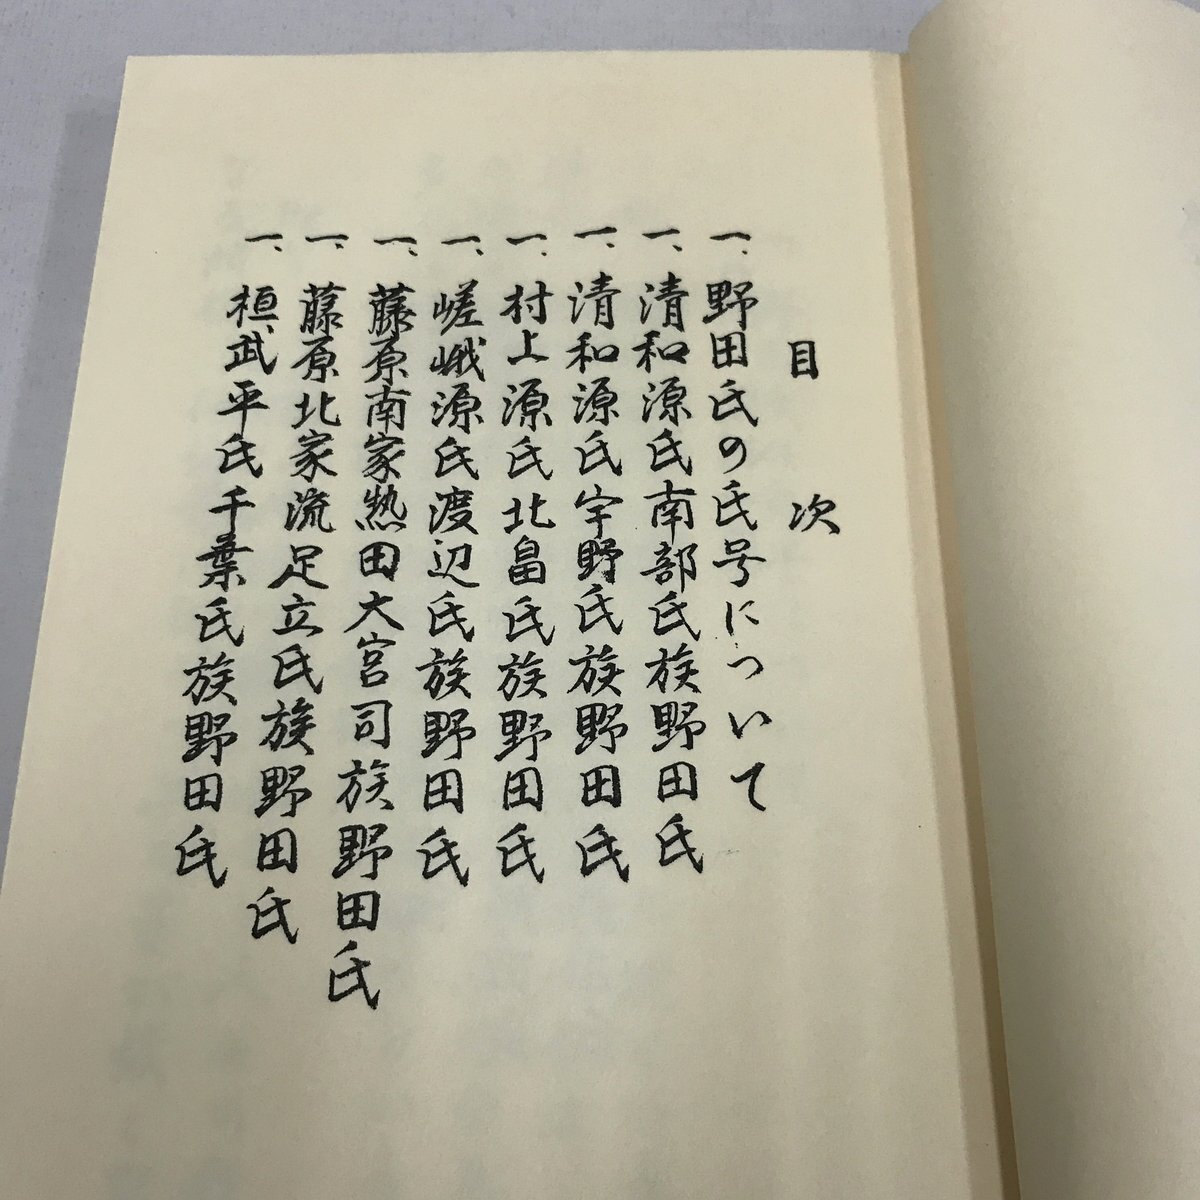 目次
一、野田氏の氏号について
一、清和源氏南部氏族野田氏
一、清和源氏宇野氏族野田氏
一、村上源氏北畠氏族野田氏
一、嵯峨源氏渡辺氏族野田氏
一、藤原南家熱田大宮司族野田氏
一、藤原北家流足立氏族野田氏
一、桓武平氏千葉氏族野田氏